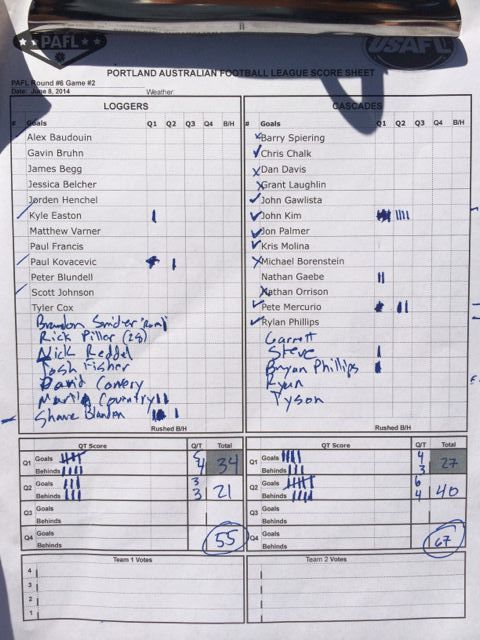 PAFL
USAFL
PORTLAND AUSTRALIAN FOOTBALL LEAGUE SCORE SHEET
PAFL Round #6 Game #2
Date: June 8, 2014 Weather:
LOGGERS
# Goals Q1 Q2 Q3 Q4 B/H
Alex Baudouin
Gavin Bruhn
James Begg
Jessica Belcher
Jorden Henchel
Kyle Easton
Matthew Varner
Paul Francis
Paul Kovacevic
Peter Blundell
Scott Johnson
Tyler Cox
Brandon
Rick Piller (29)
Nick Reddel
Josh Fisher
David Conery
Martin Coventry
Shane Blandon
Rushed B/H
CASCADES
# Goals Q1 Q2 Q3 Q4 B/H
Barry Spiering
Chris Chalk
Dan Davis
Grant Laughlin
John Gawlista
John Kim
Jon Palmer
Kris Molina
Michael Borenstein
Nathan Gaebe
Nathan Orrison
Pete Mercurio
Rylan Phillips
Garrett
Steve
Bryan Phillips
Ryan
Tyson
Rushed B/H
QT Score Q/T Total
Q1 Goals 5
Behinds 4 34
Q2 Goals 3
Behinds 3 21
Q3 Goals
Behinds
Q4 Goals
Behinds 55
QT Score Q/T Total
Q1 Goals 4
Behinds 3 27
Q2 Goals 6
Behinds 4 40
Q3 Goals
Behinds
Q4 Goals
Behinds 67
Team 1 Votes
4
3
2
1
Team 2 Votes